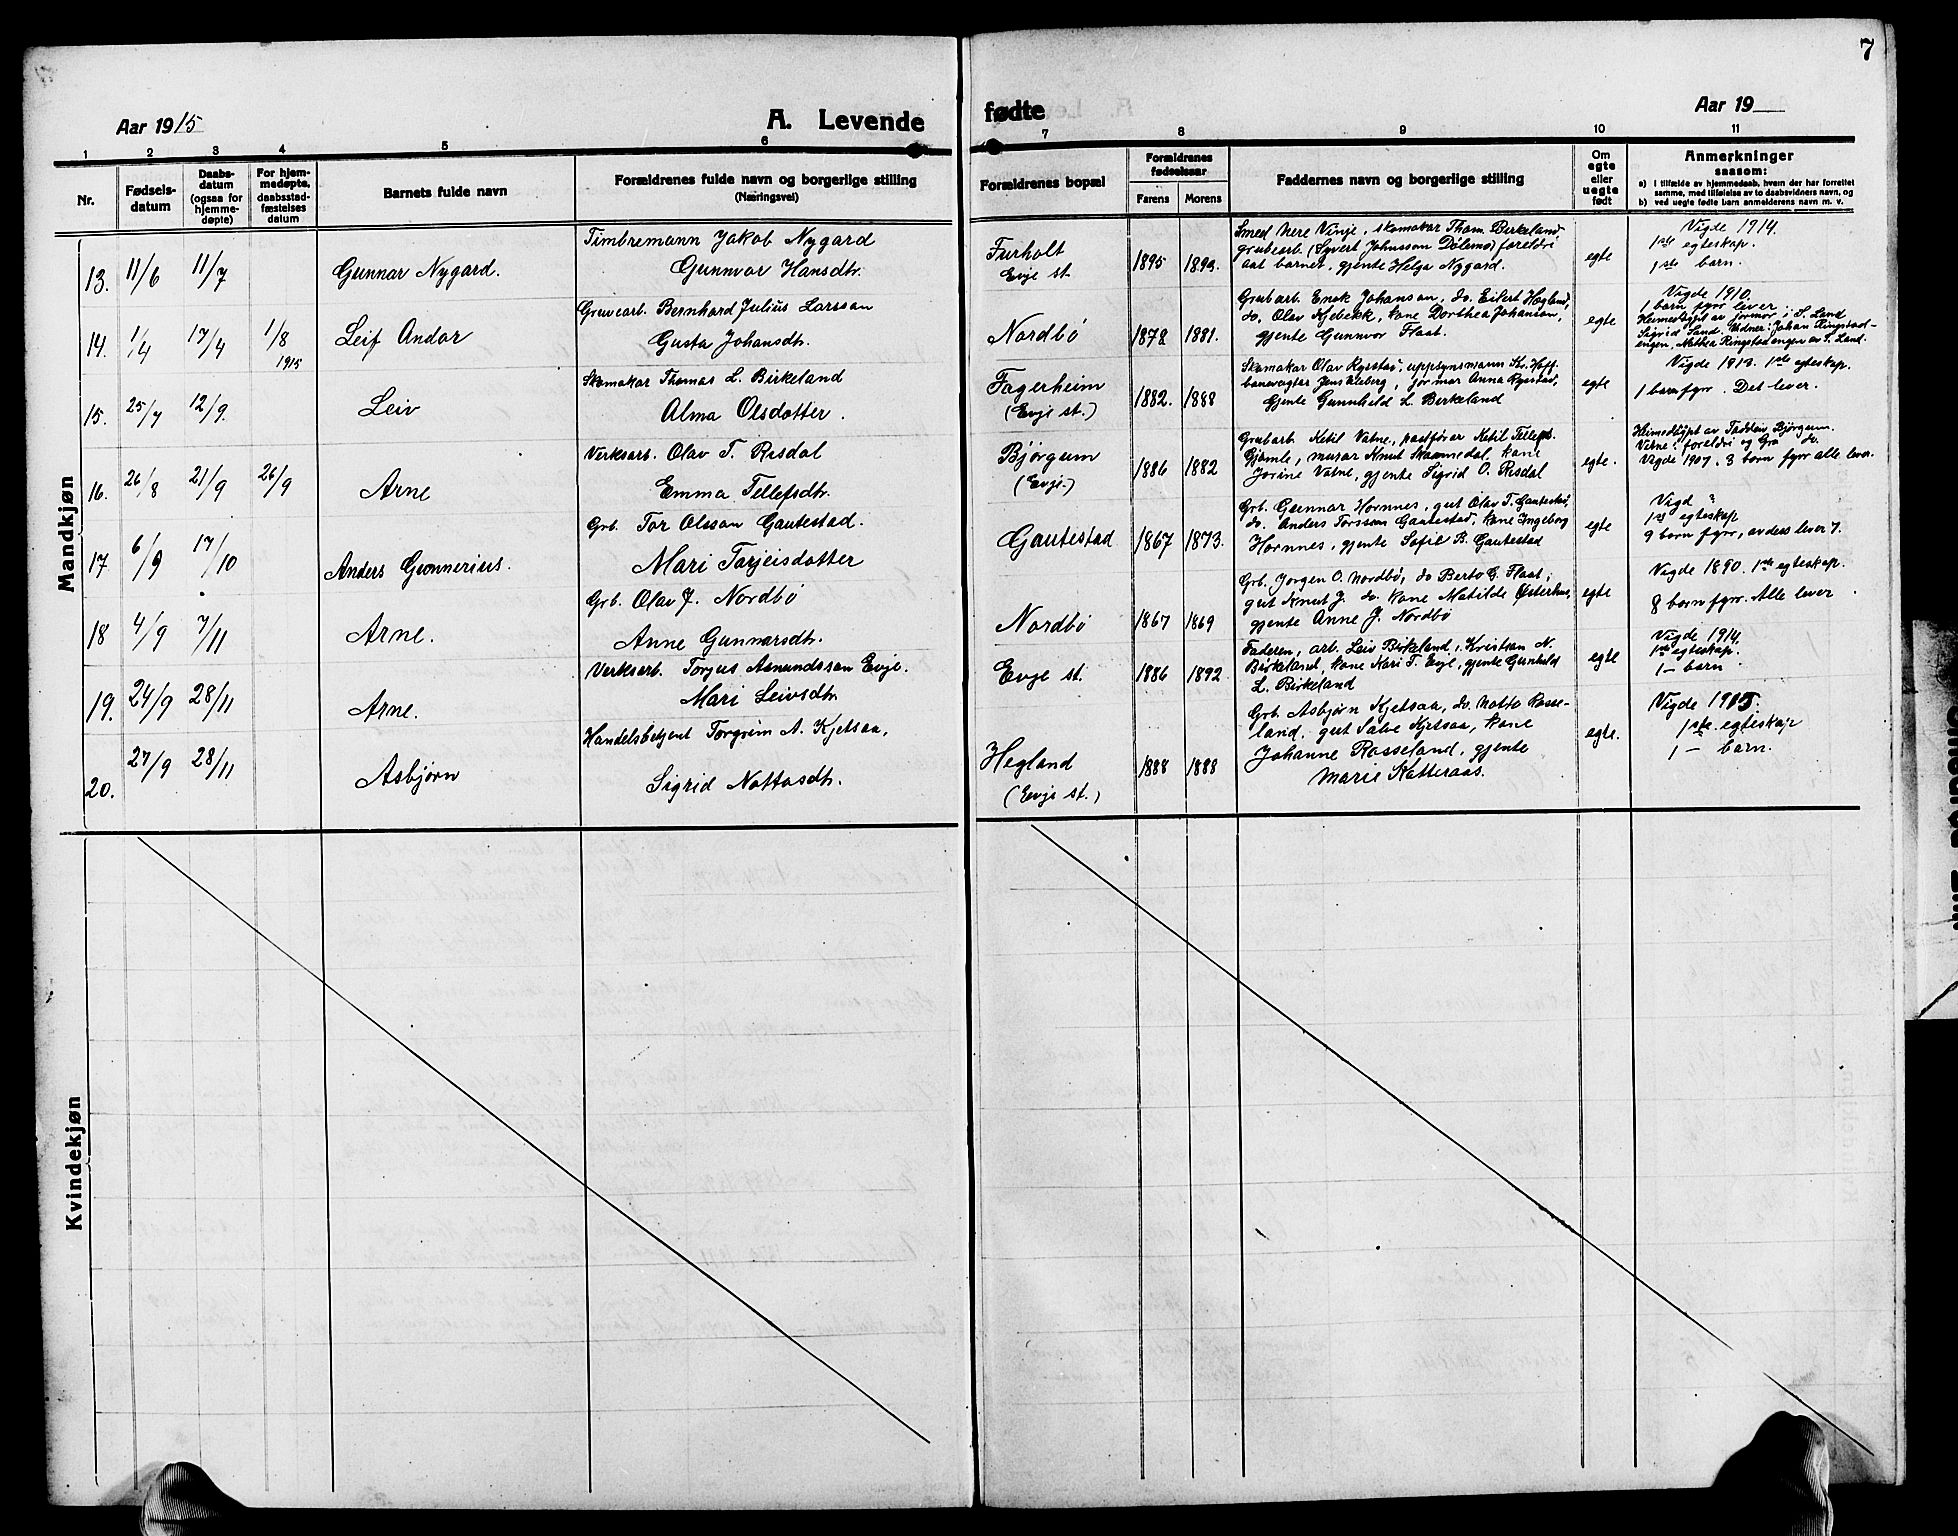 7
Aar 1915
A. Levende
fødte
Aar 19
1 2 3 4 5 6 7 8 9 10 11
Nr.
Fødsels-
datum
Daabs-
datum
(ogsaa for
hjemme-
døpte)
For hjem-
medøpte,
daabsstad-
fæstelses
datum
Barnets fulde navn
Forældrenes fulde navn og borgerlige stilling
(Næringsvei)
Forældrenes bopæl
Forældrenes
fødselsaar
Farens
Morens
Faddernes navn og borgerlige stilling
Om
egte
eller
uegte
født
Anmerkninger
saasom:
a) i tilfælde av hjemmedaab, hvem der har forrettet
samme, med tilføielse av to daabsvidners navn, og
b) ved uegte fødte barn anmelderens navn m. v.
Mandkjøn
13. 11/6 11/7 Gunnar Nygard.
Timbremann Jakob Nygard
Gunnvor Hansdtr.
Furholt
Evje st.
1895
Smed Nere Vinje, skomakar Thom. Birkeland
grubearb. (Syvert Johnsson Dölemo) foreldri
aat barnet, gjente Helga Nygard.
egte
Vigde 1914.
1ste egteskap.
1ste barn.
14. 1/4 17/4 1/8 1915 Leif Andor
Gruvearb. Bernhard Julius Larsson
Gusta Johansdtr.
Nordbø
1878 1881.
Grubarb. Enok Johanson, do. Eilert Høgland,
do. Olav Kjebekk, kone Dorthea Johanson,
gjente Gunnvor Flaat.
egte
Vigde 1910.
1 barn fyrr lever
Heimedøypt av jormor i S. Land
Sigrid Land. Vidner: Johan Ringstad-
engen, Mathea Ringstadengen av S. Land.
15. 25/7 12/9. Leiv
Skomakar Thomas L. Birkeland
Alma Olsdotter.
Fagerheim
(Evje st.)
1882. 1888
Skomakar Olav Rysstad, uppsynsmann Hoff
banevagtar Jens Kleberg, jormor Anna Rysstad,
Gjente Gunnhild L. Birkeland
egte
Vigde 1913. 1ste egteskap.
1 barn fyrr. Det lever.
16. 26/8 21/9 26/9 Arne
Verksarb. Olav T. Risdal
Emma Tellefsdtr.
Bjørgum
(Evje.)
1886 1882
Grubarb. Ketil Vatne, postfører Ketil Tellefs.
Gjomle, murar Knut Skammedal, kone
Jorine Vatne, gjente Sigrid O. Risdal
egte.
Heimedøypt av Tadden Bjørgum.
Vitne: foreldri og Gra do.
Vigde 1907. 3 born fyrr alle lever.
17. 6/9 17/10 Anders Gunnerius.
Grb. Tor Olsson Gautestad.
Mari Torjeisdotter
Gautestad
1867 1873.
Grb. Gunnar Hornnes, gut Olav T. Gautestad,
do. Anders Torsson Gautestad, kone Ingeborg
Hornnes, gjente Sofie B. Gautestad
egte
Vigd ?
1st egteskap
9 born fyrr, av deis lever 7.
18 4/9 7/11 Arne.
Grb. Olav J. Nordbø
Anne Gunnarsdtr.
Nordbø
1867 1869
Grb. Jørgen O. Nordbø, do Berto G. Flaat,
gut Knut J. do. kone Matilde Østerhus,
gjente Anne J. Nordbø
egte
Vigde 1890. 1ste egteskap.
8 born fyrr. Alle lever
19. 24/9 28/11 Arne.
Verksarb. Torjus Asmundsson Evje.
Mari Leivsdtr.
Evje st.
1886 1892
Faderen, arb. Leiv Birkeland, Kristian N.
Birkeland, kone Kari T. Evje, gjente Gunhild
L. Birkeland
egte
Vigde 1914.
1ste egteskap.
1 — barn
20. 27/9 28/11 Asbjørn
Handelsbetjent Torgrim A. Kjetsaa,
Sigrid Nottosdtr.
Hegland
(Evje st.)
1888 1888
Grb. Asbjørn Kjetsaa, do. Notto Rosse-
land, gut Salve Kjetsaa, kone
Johanne Rosseland, gjente
Marie Katteraas.
egte.
Vigde 1915.
1ste egteskap
1 — barn.
Kvindekjøn